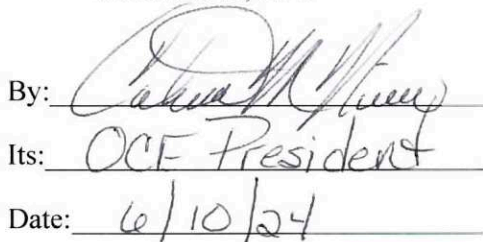 By:
Its: OCE President
Date: 6/10/24